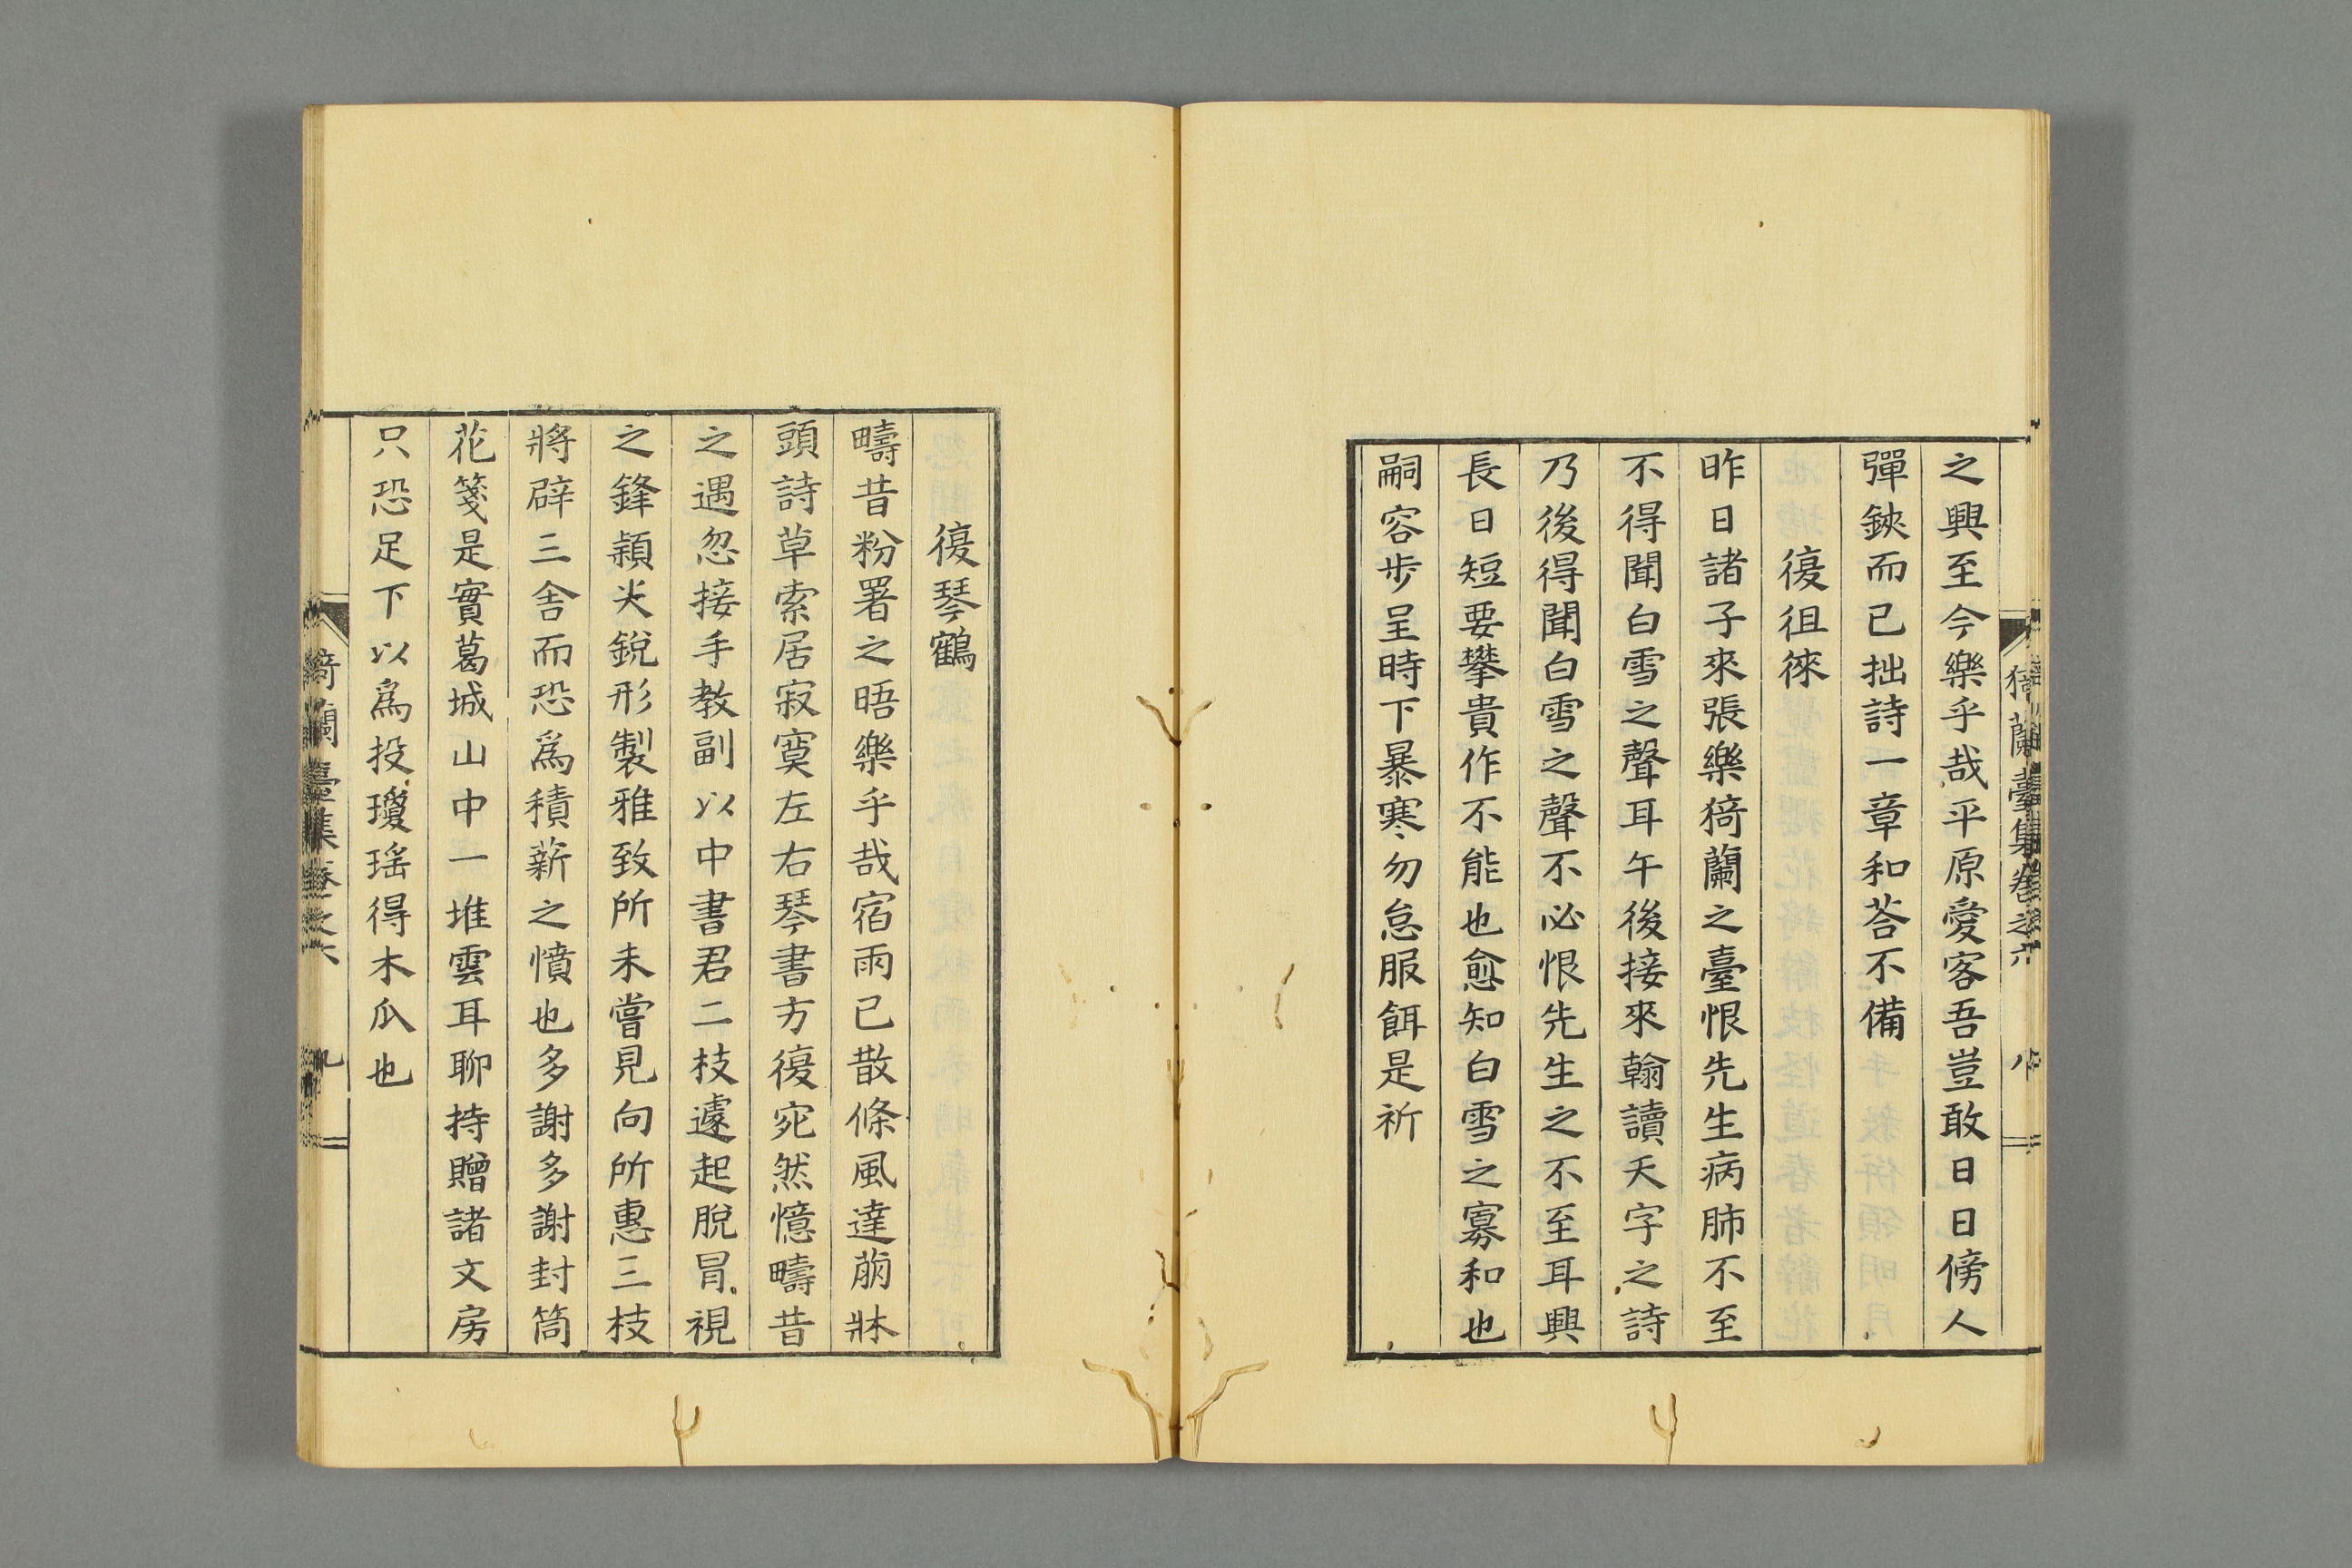 猗蘭臺集卷之六 八
之興至今樂乎哉平原愛客吾豈敢日日傍人
彈鋏而已拙詩一章和荅不備
復徂徠
昨日諸子來張樂猗蘭之臺恨先生病肺不至
不得聞白雪之聲耳午後接來翰讀天字之詩
乃後得聞白雪之聲不必恨先生之不至耳興
長日短要攀貴作不能也愈知白雪之寡和也
嗣容步呈時下暴寒勿怠服餌是祈
復琴鶴
疇昔粉署之晤樂乎哉宿雨已散條風達萠牀
頭詩草索居寂寞左右琴書方復宛然憶疇昔
之遇忽接手教副以中書君二枝遽起脫冐視
之鋒穎尖銳形製雅致所未嘗見向所惠三枝
將辟三舍而恐爲積薪之憤也多謝多謝封筒
花箋是實葛城山中一堆雲耳聊持贈諸文房
只恐足下以爲投瓊瑤得木瓜也
猗蘭臺集卷之六 九